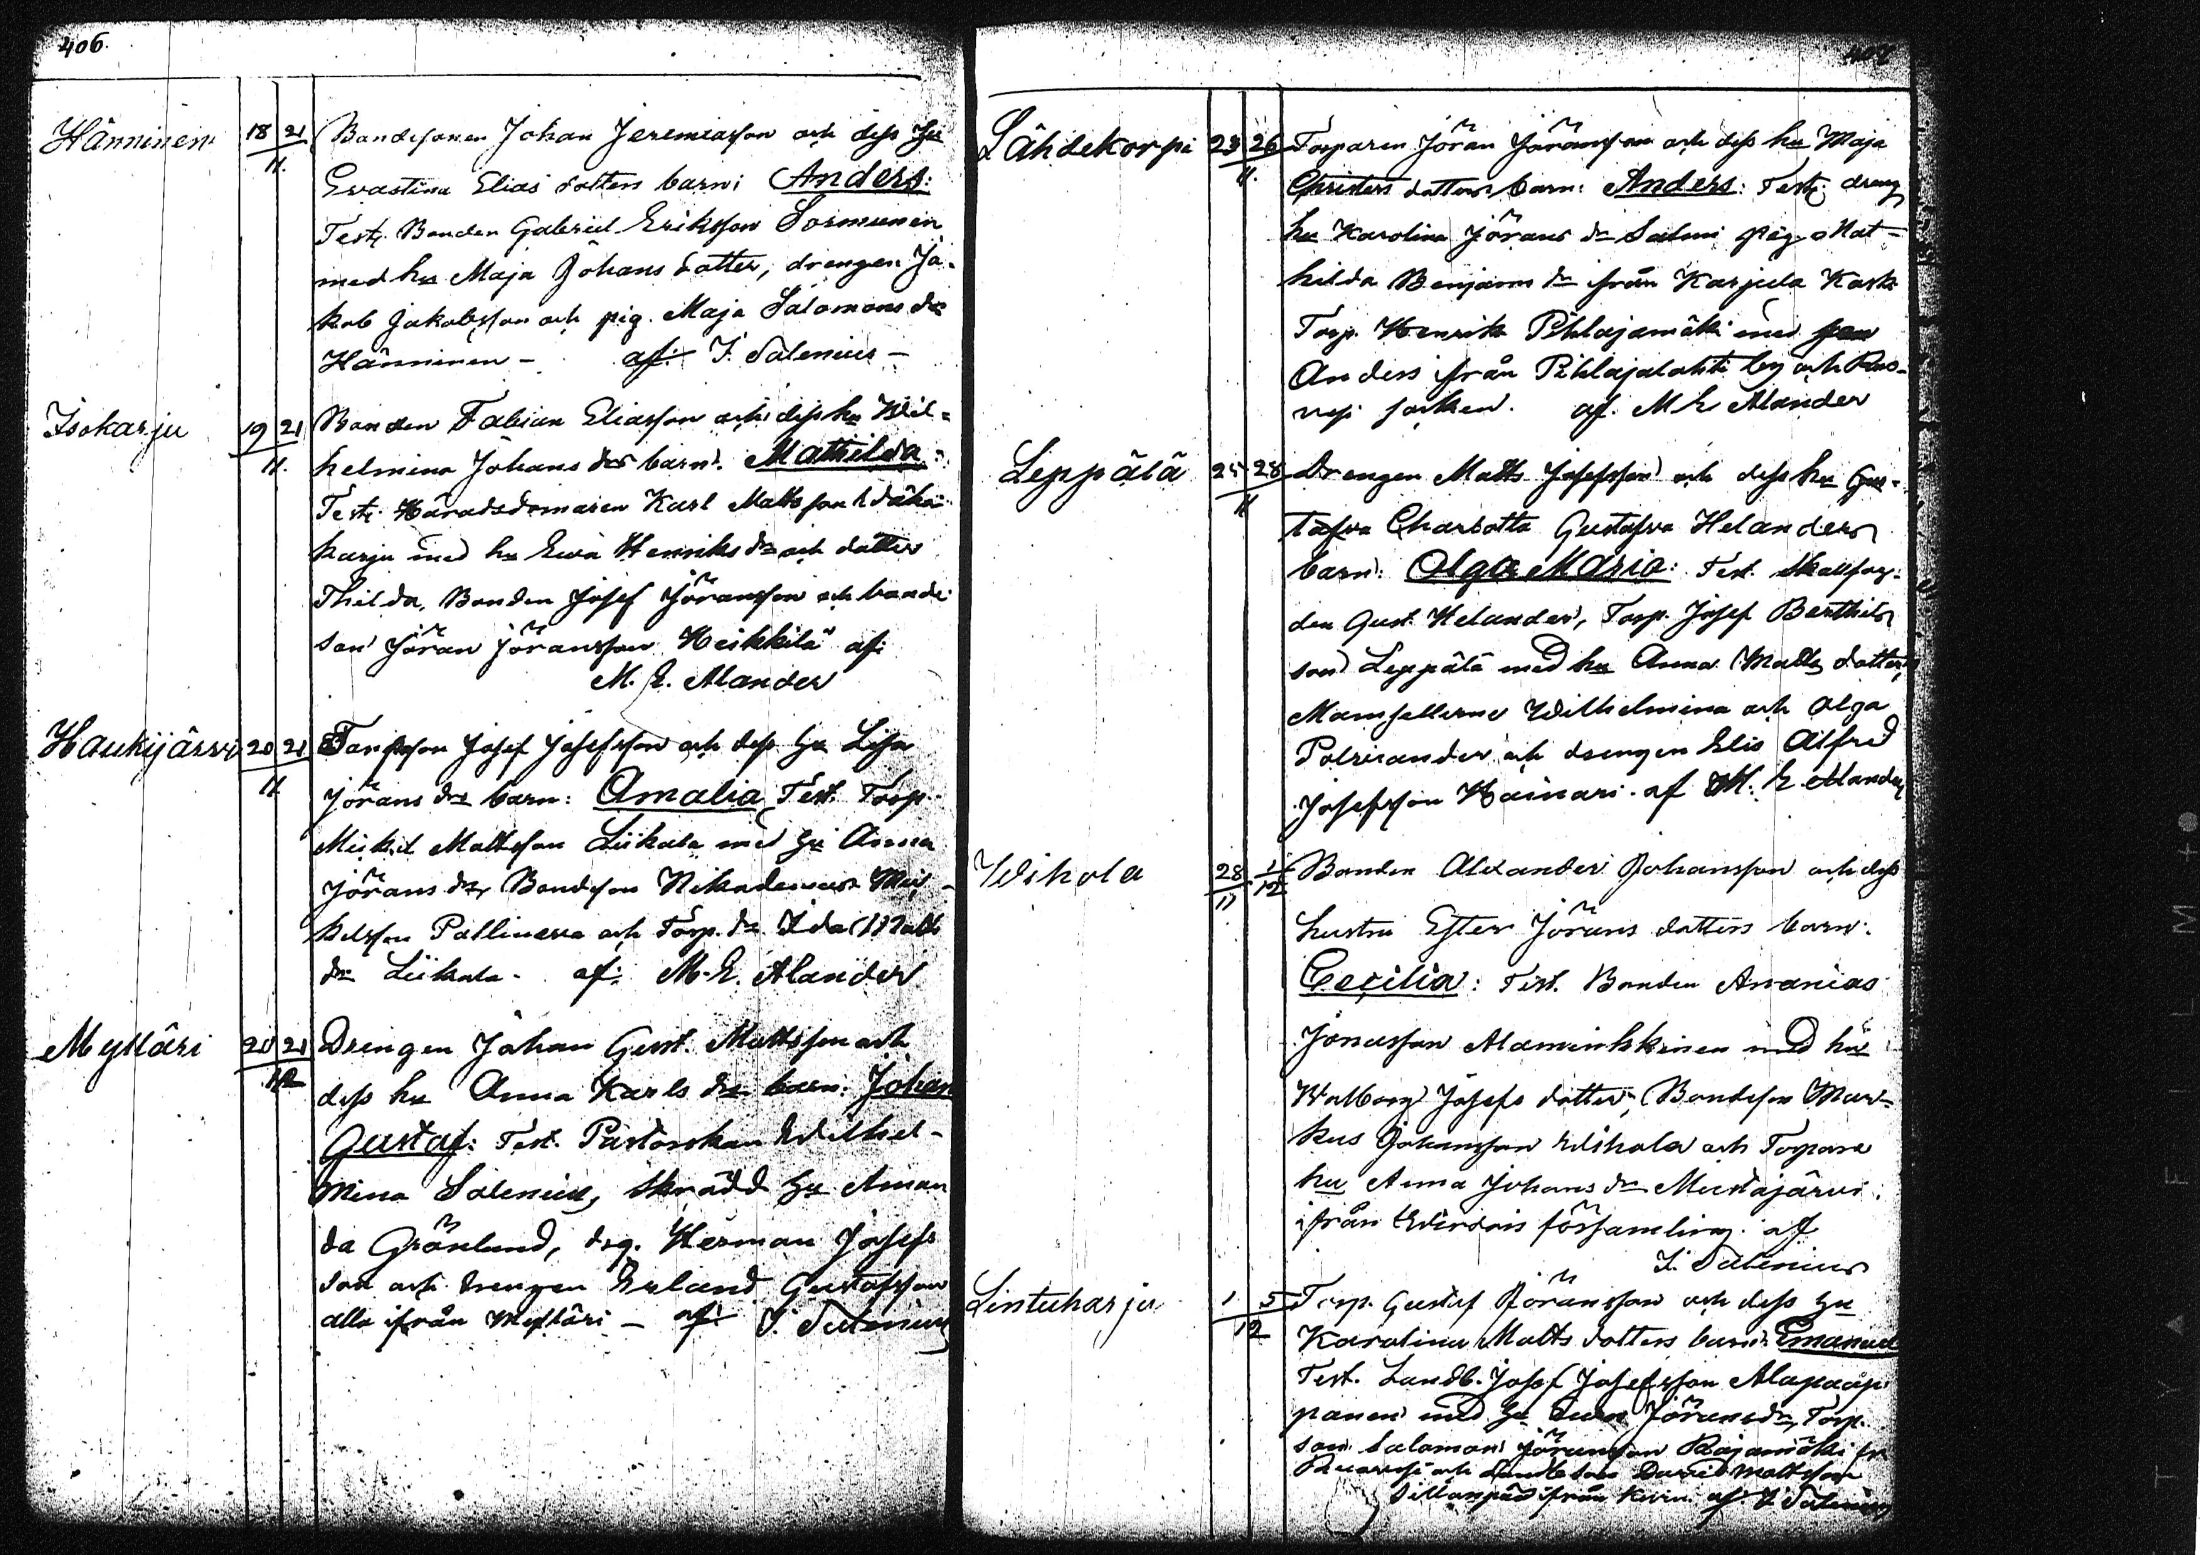 406.
Hänninen 18 21 Bondesonen Johan Jeremiasson och dess hu
11. Evastina Elias dotters barn: Anders:
Test. Bonden Gabriel Eriksson Sormunen
med hu Maja Johans dotter, drengen Ja-
kob Jakobsson och pig. Maja Salomons dr
Hänninen – af: I. Salenius –
Isokarju 19 21 Bonden Fabian Eliasson och dess hu Wil-
11. helmina Johans drs barn: Mathilda:
Test: Häradsdomaren Karl Mattsson
karju med hu Ewa Henriks dr och dotter
Thilda, Bonden Josef Jöransson och bonde
son Jöran Jöransson Heikkilä af:
M. E. Alander
Haukijärvi 20 21 Torpson Josef Josefsson och dess hu Lisa
11 Jörans drs barn: Amalia Test. Torp.
Mickel Mattsson Liikala med hu Anna
Jörans dr, Bondeson Nikodemus Mic-
kelsson Pallinen och Torp. dr Ida Matts
dr Liikala – af: M. E. Alander
Mylläri 20 21 Drengen Johan Gust. Mattsson och
12 dess hu Anna Karls drs barn: Johan
Gustaf: Test. Pastorskan Wilhel-
mina Salenius, Skrädd hu Aman
da Grönlund, drg. Herman Josefs
son och drengen Erland Gustafsson
alla ifrån Mylläri – af: I. Salenius
407
Lähdekorpi 23 26 Torparen Jöran Jöransson och dess hu Maja
11. Christers dotters barn: Anders: Test: dreng
hu Karolina Jörans dr Salmi pig. Mat-
hilda Benjams dr från Karjula
Torp. Henrik Pihlajamäki med son
Anders från Pihlajalahti by och Ruo-
vesi socken. af. M E Alander
Leppälä 25 28 Drengen Matts Josefsson och dess hu Gus-
11 tafva Charlotta Gustafva Helanders
barn: Olga Maria: Test.
den Gust. Helander, Torp. Josef Berthils
son Leppälä med hu Anna Matts dotter,
Mamsellerne Wilhelmina och Olga
Polviander och drengen Elis Alfred
Josefsson Hainari. af M. E Alander
Wihola 28 1 Bonden Alexander Johansson och dess
11 12 hustru Ester Jörans dotters barn:
Cecilia: Test. Bonden Ananias
Jonasson Alaminkkinen med hu
Walborg Josefs dotter, Bondeson Mar-
kus Johansson Wihola och Torpare
hu Anna Johans dr Mustajärvi
ifrån Wirdois församling. af
I. Salenius
Lintuharju 1 5 Torp. Gustaf Jöransson och dess hu
12 Karolina Matts dotters barn: Emanuel
Test. Landb. Josef Josefsson Alapaap
panen med hu Jöransdr, Torp.
son Salomon Jöransson Rajamäki fr
Ruovesi och Landb. son David Mattsson
Sillanpää ifrån af I. Salenius